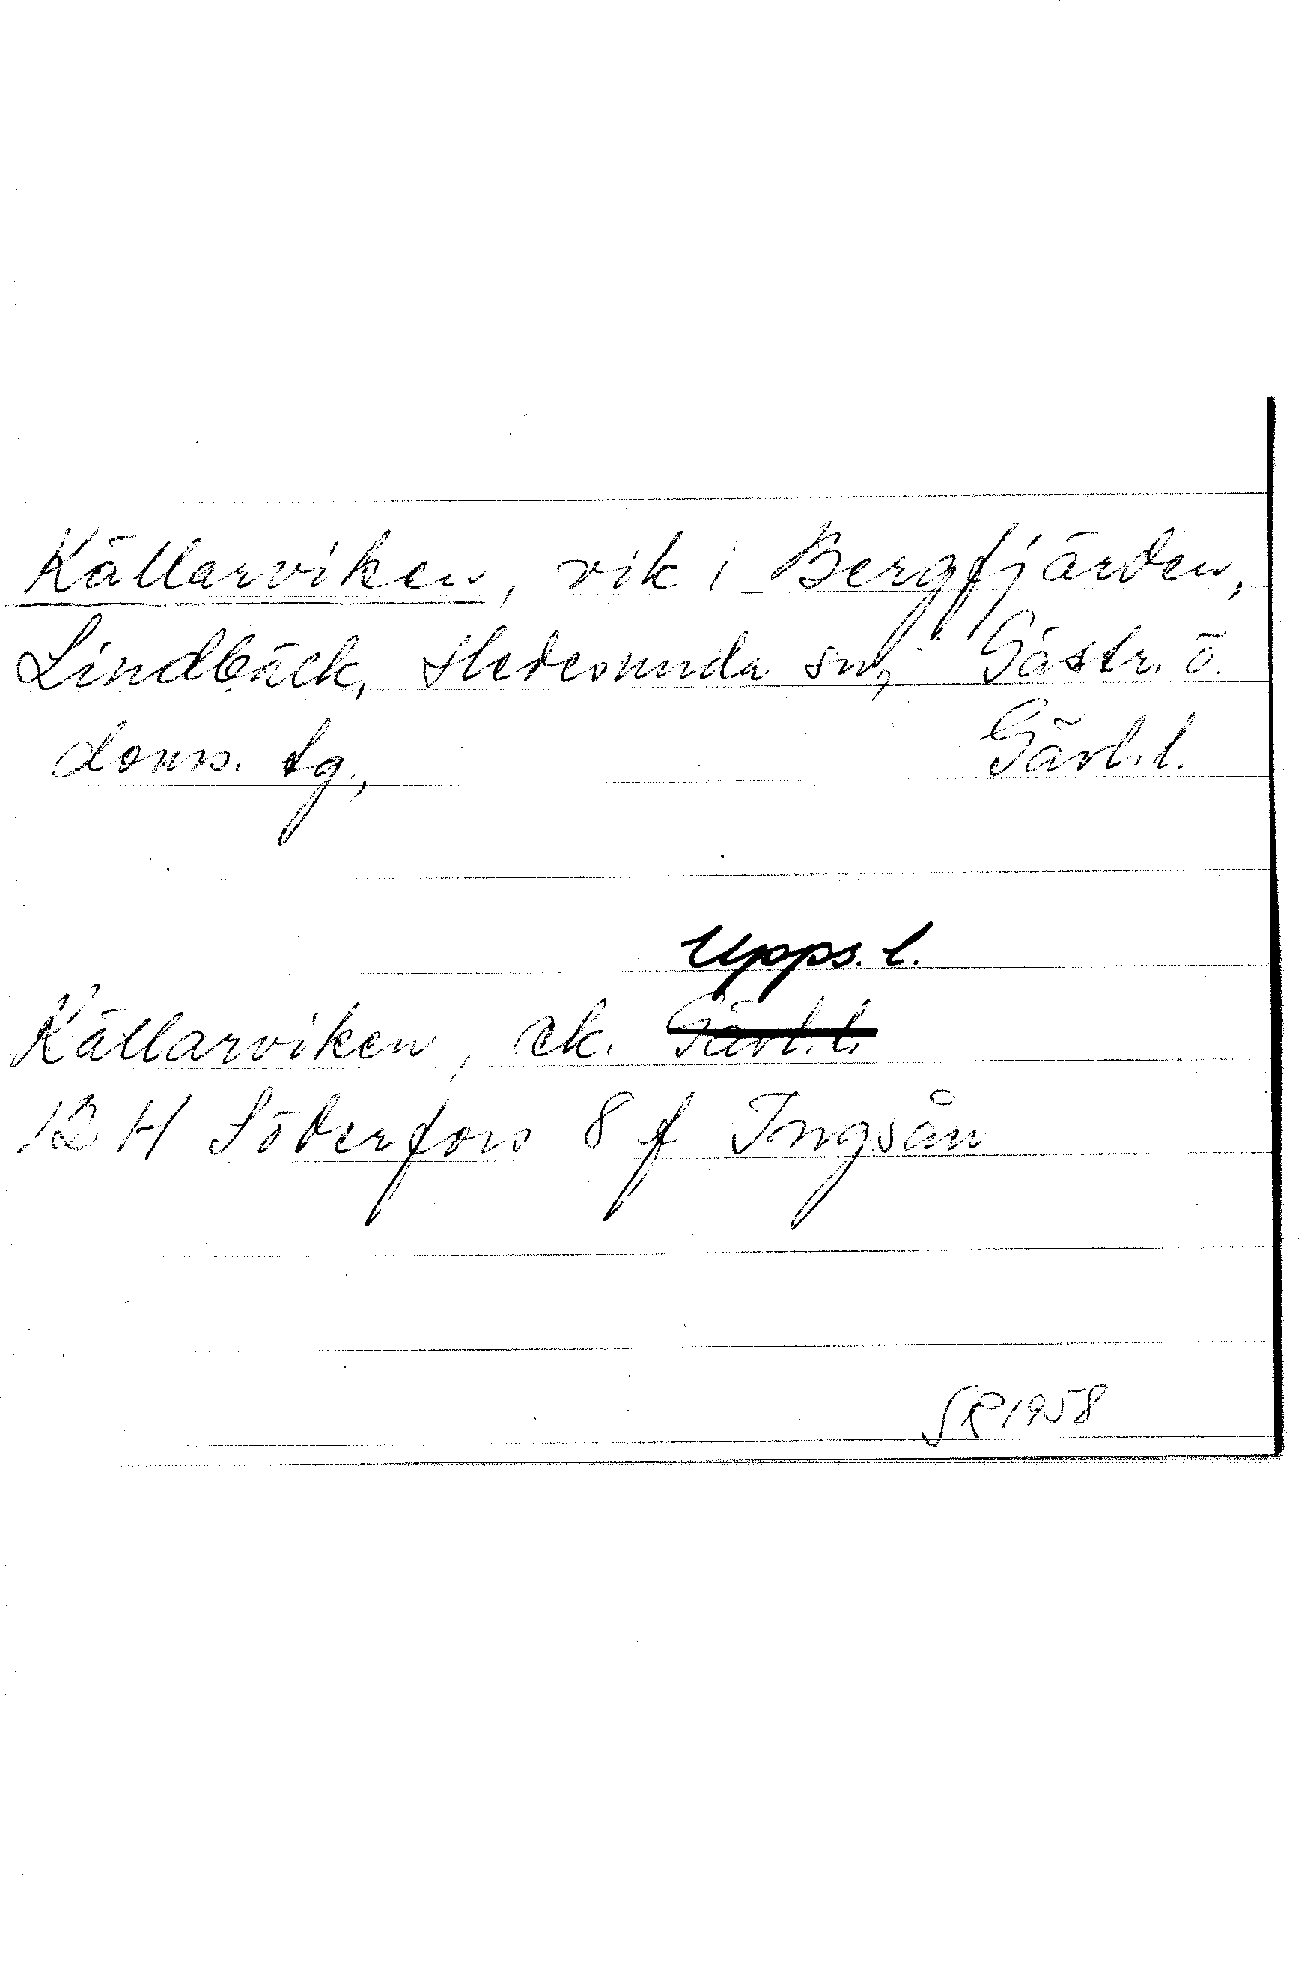 Källarviken, vik i Bergfjärden,
Lindbäck, Hedesunda sn, Gästr. ö.
doms. tg., Gävl. l.
Upps. l.
Källarviken, ek. Gävl. l.
12 H Söderfors 8 f Ingsån
SR 1958